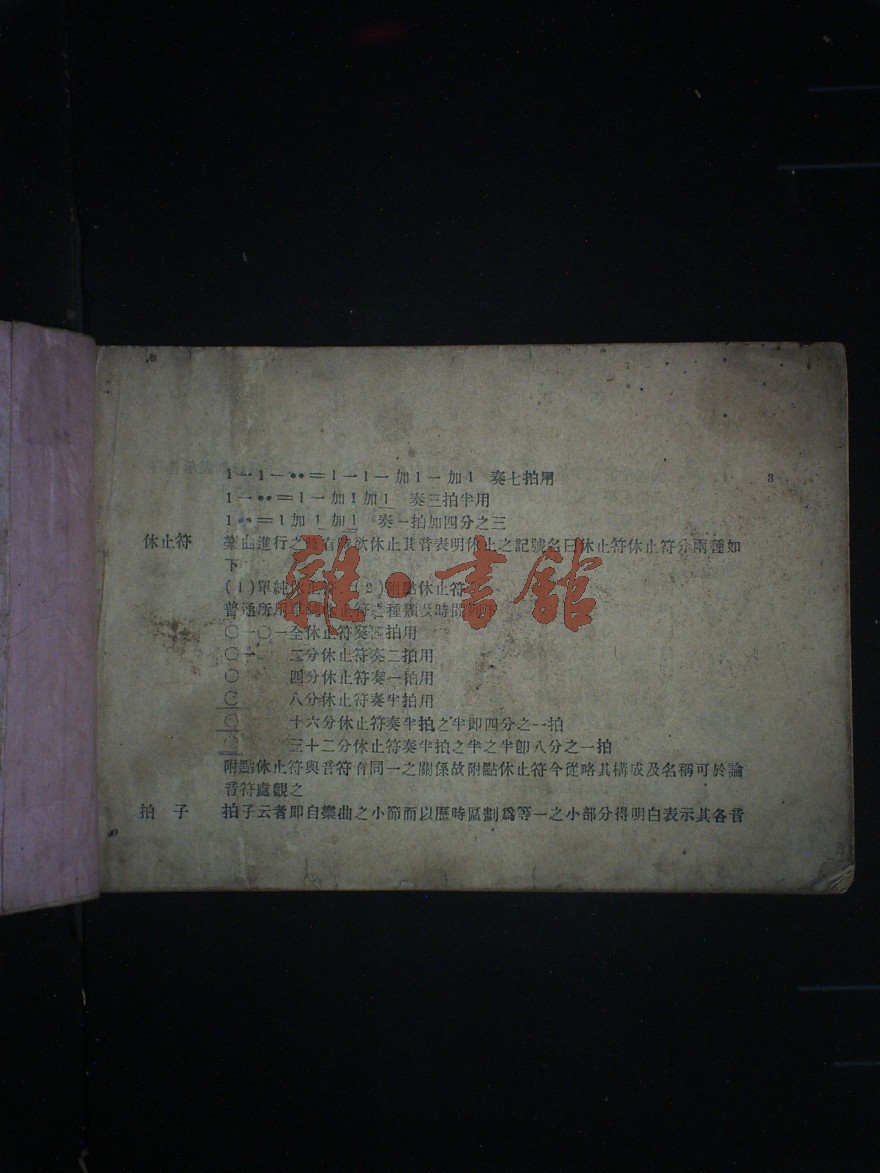 1一1一••＝1一1一加1一加1　奏七拍用
3
1一••＝1一加1加1　奏三拍半用
1••＝1加1加1　奏一拍加四分之三
休止符　樂曲進行之際有時欲休止其音表明休止之記號名曰休止符休止符分兩種如
下
(1)單純休止符 (2)附點休止符
普通所用單純休止符之種類及時
〇一〇一全休止符奏四拍用
〇一　二分休止符奏二拍用
〇　四分休止符奏一拍用
〇　八分休止符奏半拍用
〇　十六分休止符奏半拍之半即四分之一拍
〇　三十二分休止符奏半拍之半之半卽八分之一拍
附點休止符與音符有同一之關係故附點休止符今從略其構成及名稱可於論
音符處觀之
拍子　拍子云者即自樂曲之小節而以歷時區劃爲等一之小部分得明白表示其各音
雜·書館